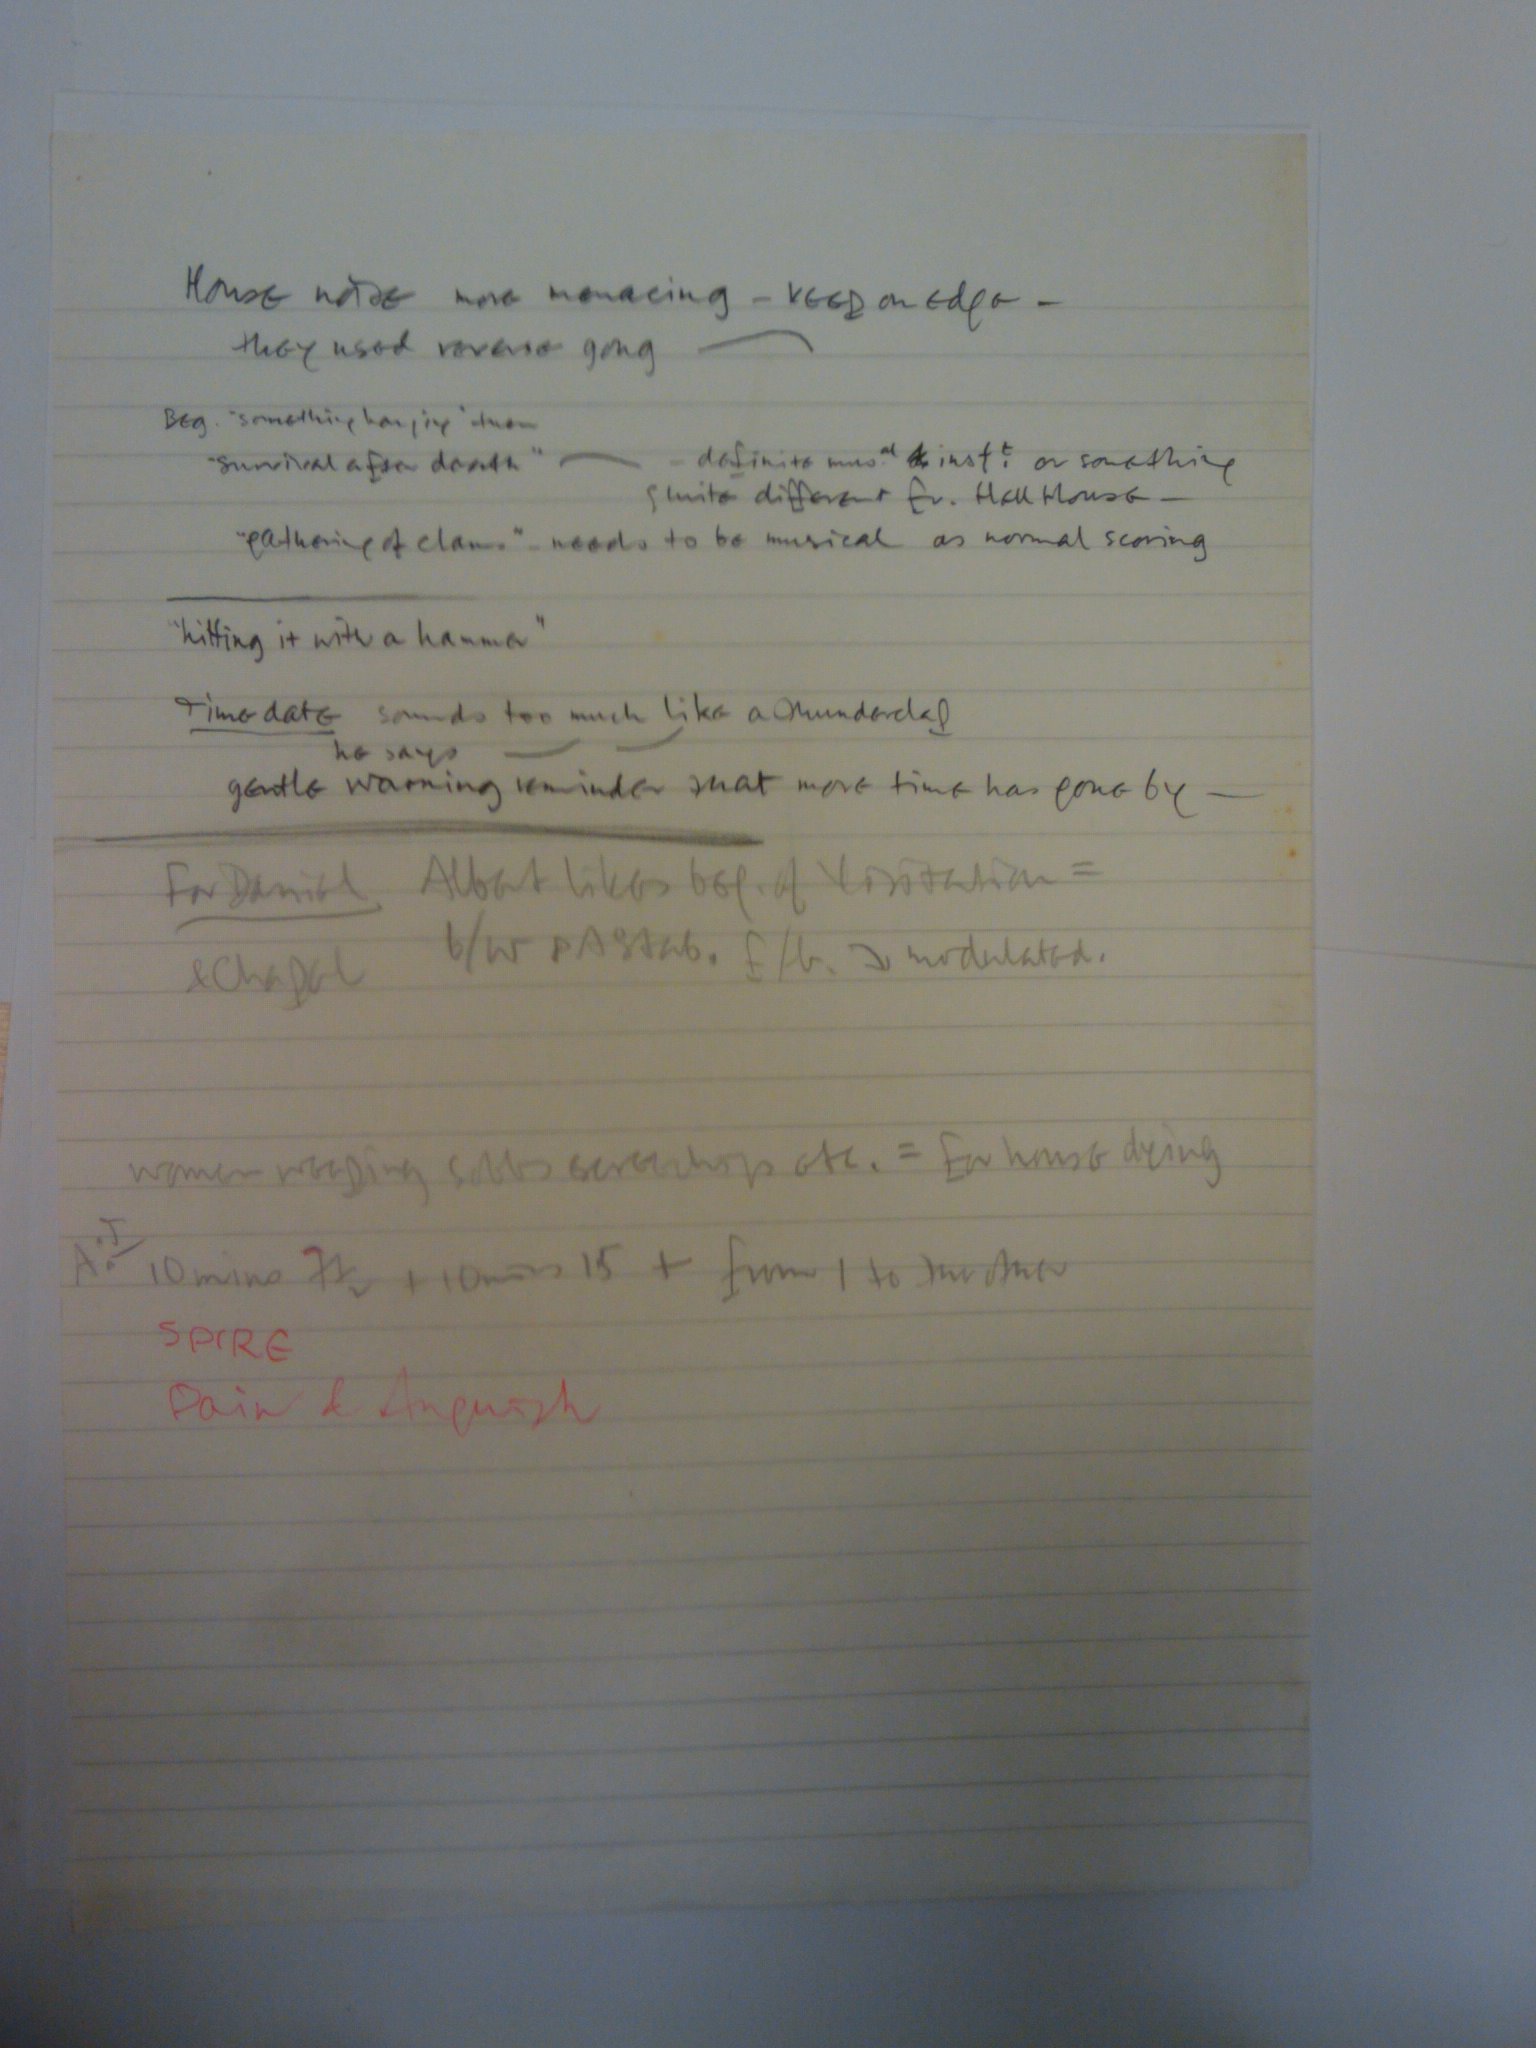 House noise more menacing – keep on edge –
they used reverse gong
Beg. "something hanging" then
"survival after death" – definite mus.al inst.t or something
quite different fr. Hell House –
"gathering of clans" – needs to be musical as normal scoring
"hitting it with a hammer"
Time date sounds too much like a thunderclap
he says
gentle warning reminder that more time has gone by –
For Daniel Albert likes beg. of Visitation =
b/w f/b. modulated.
& Chapel
women weeping sobs etc. = for house dying
10 mins 7½ + 10 mins 15 + from 1 to the other
SPIRE
Pain & Anguish